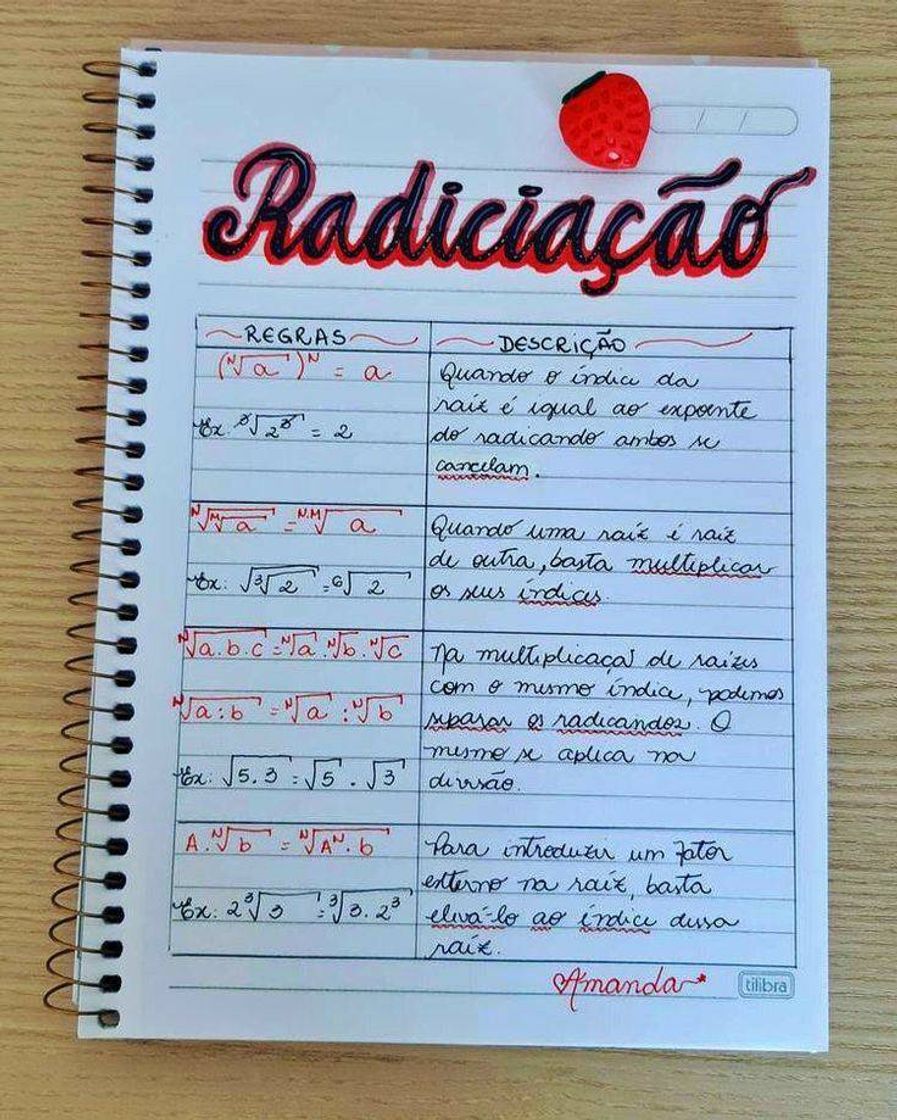 Radiciação
REGRAS
DESCRIÇÃO
(ᴺ√a)ᴺ = a
Ex: ³√2³ = 2
Quando o índice da
raiz é igual ao expoente
do radicando ambos se
cancelam.
ᴺ√ᴹ√a = ᴺ·ᴹ√a
Ex: √³√2 = ⁶√2
Quando uma raiz é raiz
de outra, basta multiplicar
os seus índices.
ᴺ√a.b.c = ᴺ√a . ᴺ√b . ᴺ√c
ᴺ√a:b = ᴺ√a : ᴺ√b
Ex: √5.3 = √5 . √3
Na multiplicação de raízes
com o mesmo índice, podemos
separar os radicandos. O
mesmo se aplica na
divisão.
A.ᴺ√b = ᴺ√Aᴺ.b
Ex: 2³√3 = ³√3.2³
Para introduzir um fator
externo na raiz, basta
elevá-lo ao índice dessa
raiz.
Amanda
tilibra